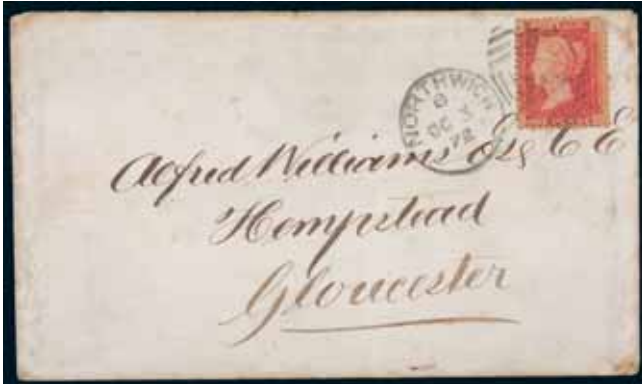 NORTHWICH
OC 3
72
Alfred Williams Esq C E
Hempstead
Gloucester